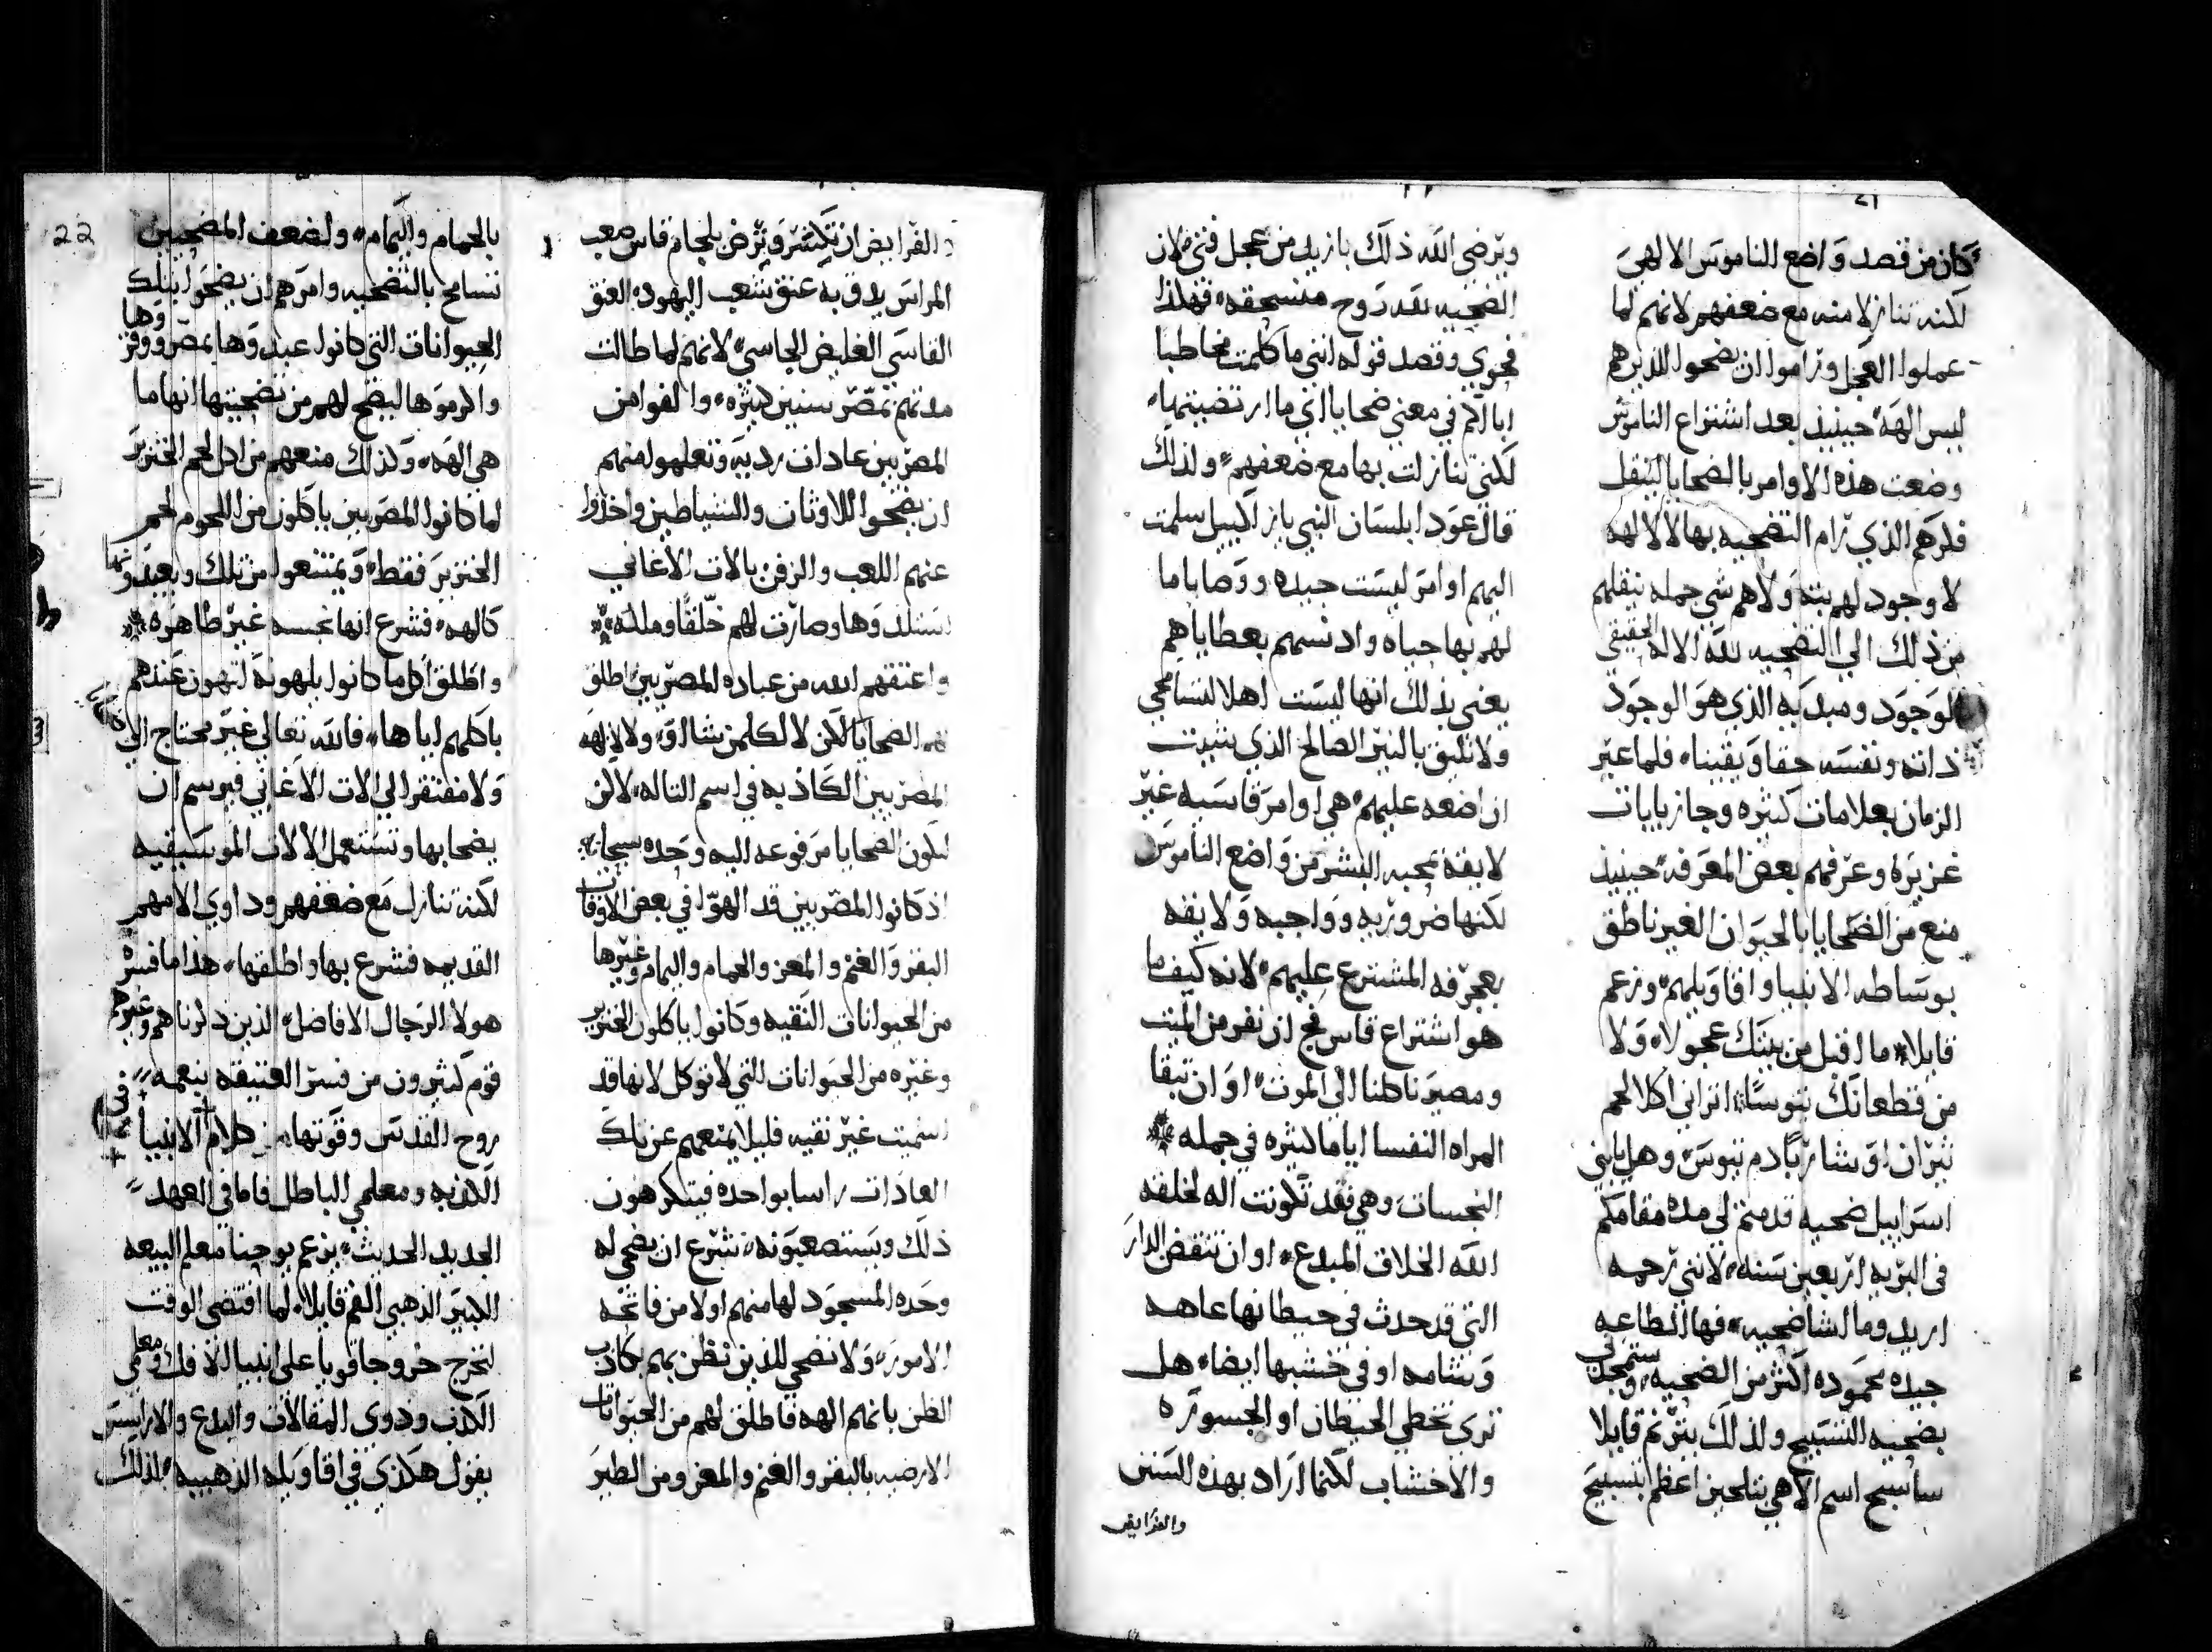 21
كان من قصد واضع الناموس الالهي
لكنه تنازلا منه مع ضعفهم لانهم لما
عملوا العجل وراموا ان يضحوا للذين هم
ليس الهه حينيذ بعد اشتراع الناموس
وضعت هذه الاوامر بالضحايا لينقل
فكرهم الذي رام التضحيه بها لالالهه
لا وجود لهم بته ولاهم شي جمله ينقلهم
من ذلك الي التضحيه لله الاله الحقيقي
الوجود ومبديه الذي هو الوجود
ذاته ونفسه حقا ويقينا فلما عبر
الزمان بعلامات كثيره وجاز بايات
غزيزه وعرفهم بعض المعرفه حينيذ
منع من الضحايا بالحيوان الغير ناطق
بوساطه الانبيا واقاويلهم وزعم
قايلا ما اقبل من بيتك عجولا ولا
من قطعانك تيوسا اتراني اكل لحم
ثيران او شاربا دم تيوس وهل يابني
اسراييل ضحيه قدمتم لي مده مقامكم
في البريه اربعين سنه لانني رحمه
اريد وما اشا ضحيه فها الطاعه
جيده محموده اكثر من الضحيه وستمجدني
بضحيه التسبيح ولذلك يترنم قايلا
ساسبح اسم الاهي بتلحين اعظم بتسبيح
ويرضي الله ذلك بازيد من عجل فتي لان
الضحيه لله روح منسحقه فهاذا
فحوي وقصد قوله انني ما كلمت مخاطبا
اباكم في معني ضحايا اي ما ارتضيتها
لكني تنازلت بها مع ضعفهم ولذلك
قال عود ابلسان النبي يازاكييل سلمت
اليهم اوامر ليست جيده ووصايا ما
لهم بها حياه وادنسهم بعطاياهم
يعني بذلك انها ليست اهلا لتسامحي
ولا تليق بالنير الصالح الذي شيت
ان اضعه عليهم هي اوامر قاسيه غير
لايقه بمحبه البشر من واضع الناموس
لكنها ضروريه وواجبه ولايقه
بعجرفه المشترع عليهم لانه كيف ما
هو اشتراع قاس فج ان نفر من الميت
ومصيرنا كلنا الي الموت او ان تبقا
المراه النفسا اياما كثيره في جمله
النجسات وهي فقد تكونت اله لخلقه
الله الخلاق المبدع او ان تنقض الدار
التي قد حدث في حيطانها عاهه
وشامه او في خشبها ايضا هل
تري تخطي الحيطان او الجسوره
والاخشاب لكنما اراد بهذه السنن
والفرايض
22
والفرايض ان تكسر وترض بلجام قاس صعب
المراس يدق به عنق شعب اليهود العنق
القاسي الغليض الجاسي لانهم لما طالت
مدتهم بمصر سنين كثيره والفوا من
المصريين عادات رديه وتعلموا منهم
ان يضحوا للاوثان والشياطين واخذوا
عنهم اللعب والزفن بالات الاغاني
يستلذوها وصارت لهم خلقا وملكه
واعتقهم الله من عباده المصريين اطلق
لهم الضحايا لاكن لا لكلمن شا او ولا لالهه
المصريين الكاذبه في اسم التاله لاكن
لتكون الضحايا مرفوعه اليه وحده سبحانه
اذ كانوا المصريين قد الهوا في بعض الاوقات
البقر والغنم والمعز والحمام واليمام وغيرها
من الحيوانات النقيه وكانوا ياكلون الخنزير
وغيره من الحيوانات التي لا توكل لانها قد
سميت غير نقيه فليلا يمنعهم عن تلك
العادات راسا بواحده فيتكرهون
ذلك ويستصعبونه شرع ان يضحي له
وحده المسجود لها منهم اولا من فاتحه
الامور ولا تضحي للذين نظن بهم كاذب
الظن بانهم الهه فاطلق لهم من الحيوانات
الارضيه بالبقر والغنم والمعز ومن الطير
بالحمام واليمام ولضعف المضحيين
تسامح بالتضحيه وامرهم ان يضحوا بتلك
الحيوانات التي كانوا عبدوها بمصر ووقروها
واكرموها ليضح لهم من تضحيتها انها ما
هي الهه وكذلك منعهم من اكل لحم الخنزير
لما كانوا المصريين ياكلون من اللحوم لحم
الخنزير فقط ويمتنعوا من تلك ويعبدونها
كالهه فشرع انها نجسه غير طاهره
واطلق اكل ما كانوا يلهونه لتهون عندهم
باكلهم اياها فالله تعالي غير محتاج الي
ولا مفتقر الي الات الاغاني فيوسم ان
يضحا بها وتستعمل الالات الموسيقيه
لكنه تنازل مع ضعفهم وداوي الامهم
القديمه فشرع بها واطلقها هذا ما فسره
هولا الرجال الافاضل الذين ذكرناهم وغيرهم
قوم كثيرون من فسر العتيقه بنعمه
روح القدس وقوتها كلام الانبيا
الكذبه ومعلمي الباطل فاما في العهد
الجديد الحديث يزعم يوحنا معلم البيعه
الكبير الذهبي الفم قايلا لما اقتضي الوقت
لنخرج خروجا قويا علي انبيا الافك ومعلمي
الكذب وذوي المقالات والبدع والاراسيس
يقول هكذي في اقاويله الذهبيه لذلك